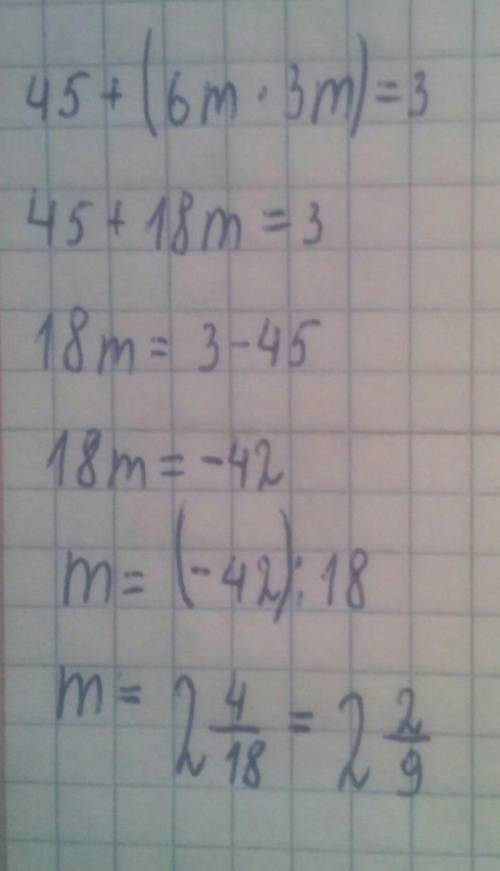 45 + (6m · 3m) = 3
45 + 18m = 3
18m = 3 - 45
18m = -42
m = (-42) : 18
m = 2 4/18 = 2 2/9